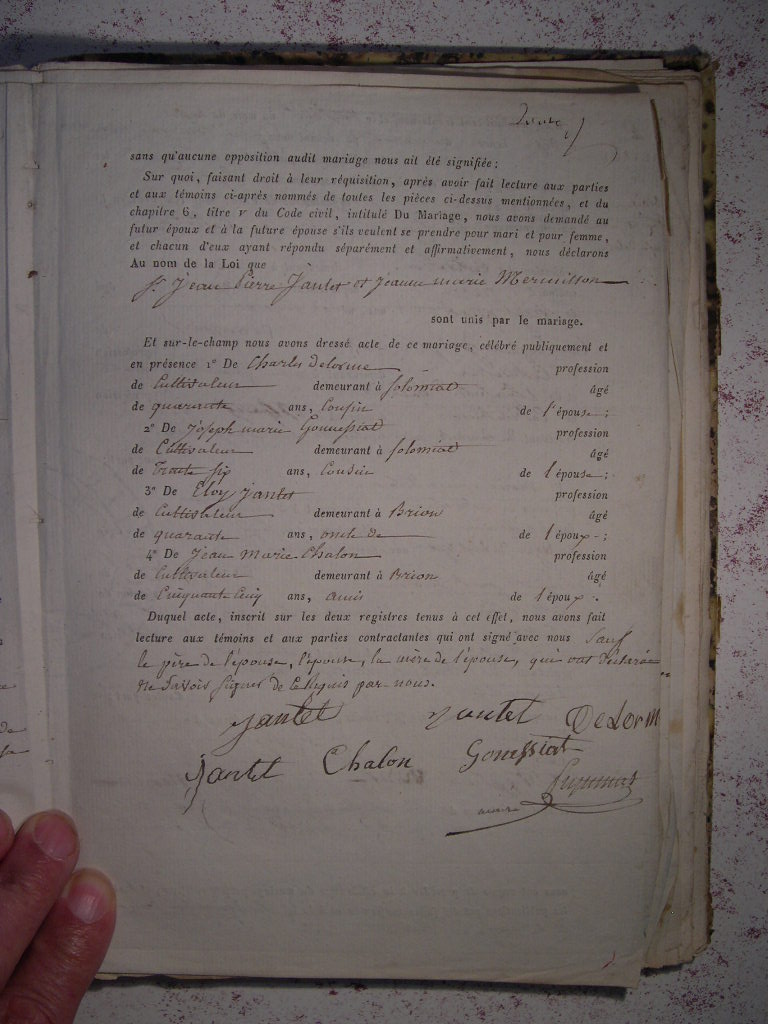 sans qu'aucune opposition audit mariage nous ait été signifiée;
Sur quoi, faisant droit à leur réquisition, après avoir fait lecture aux parties
et aux témoins ci-après nommés de toutes les pièces ci-dessus mentionnées, et du
chapitre 6, titre v du Code civil, intitulé Du Mariage, nous avons demandé au
futur époux et à la future épouse s'ils veulent se prendre pour mari et pour femme,
et chacun d'eux ayant répondu séparément et affirmativement, nous déclarons
Au nom de la Loi que
Jean Pierre Jantet et Jeanne marie Mermillon
sont unis par le mariage.
Et sur-le-champ nous avons dressé acte de ce mariage, célébré publiquement et
en présence 1º De Charles Delorme profession
de Cultivateur demeurant à Solomiat âgé
de quarante ans, Cousin de l'épouse;
2º De Joseph marie Gonnessiat profession
de Cultivateur demeurant à Solomiat âgé
de Trente six ans, Cousin de l'épouse;
3º De Eloy Jantet profession
de Cultivateur demeurant à Brion âgé
de quarante ans, oncle de de l'époux;
4º De Jean Marie Chalon profession
de Cultivateur demeurant à Brion âgé
de Cinquante Cinq ans, amis de l'époux.
Duquel acte, inscrit sur les deux registres tenus à cet effet, nous avons fait
lecture aux témoins et aux parties contractantes qui ont signé avec nous Sauf
le père de l'épouse, l'épouse, la mère de l'épouse, qui ont déclaré
ne Savoir Signer de Ce Requis par nous.
Jantet Jantet DeLorm
Jantet Chalon Gonnessiat